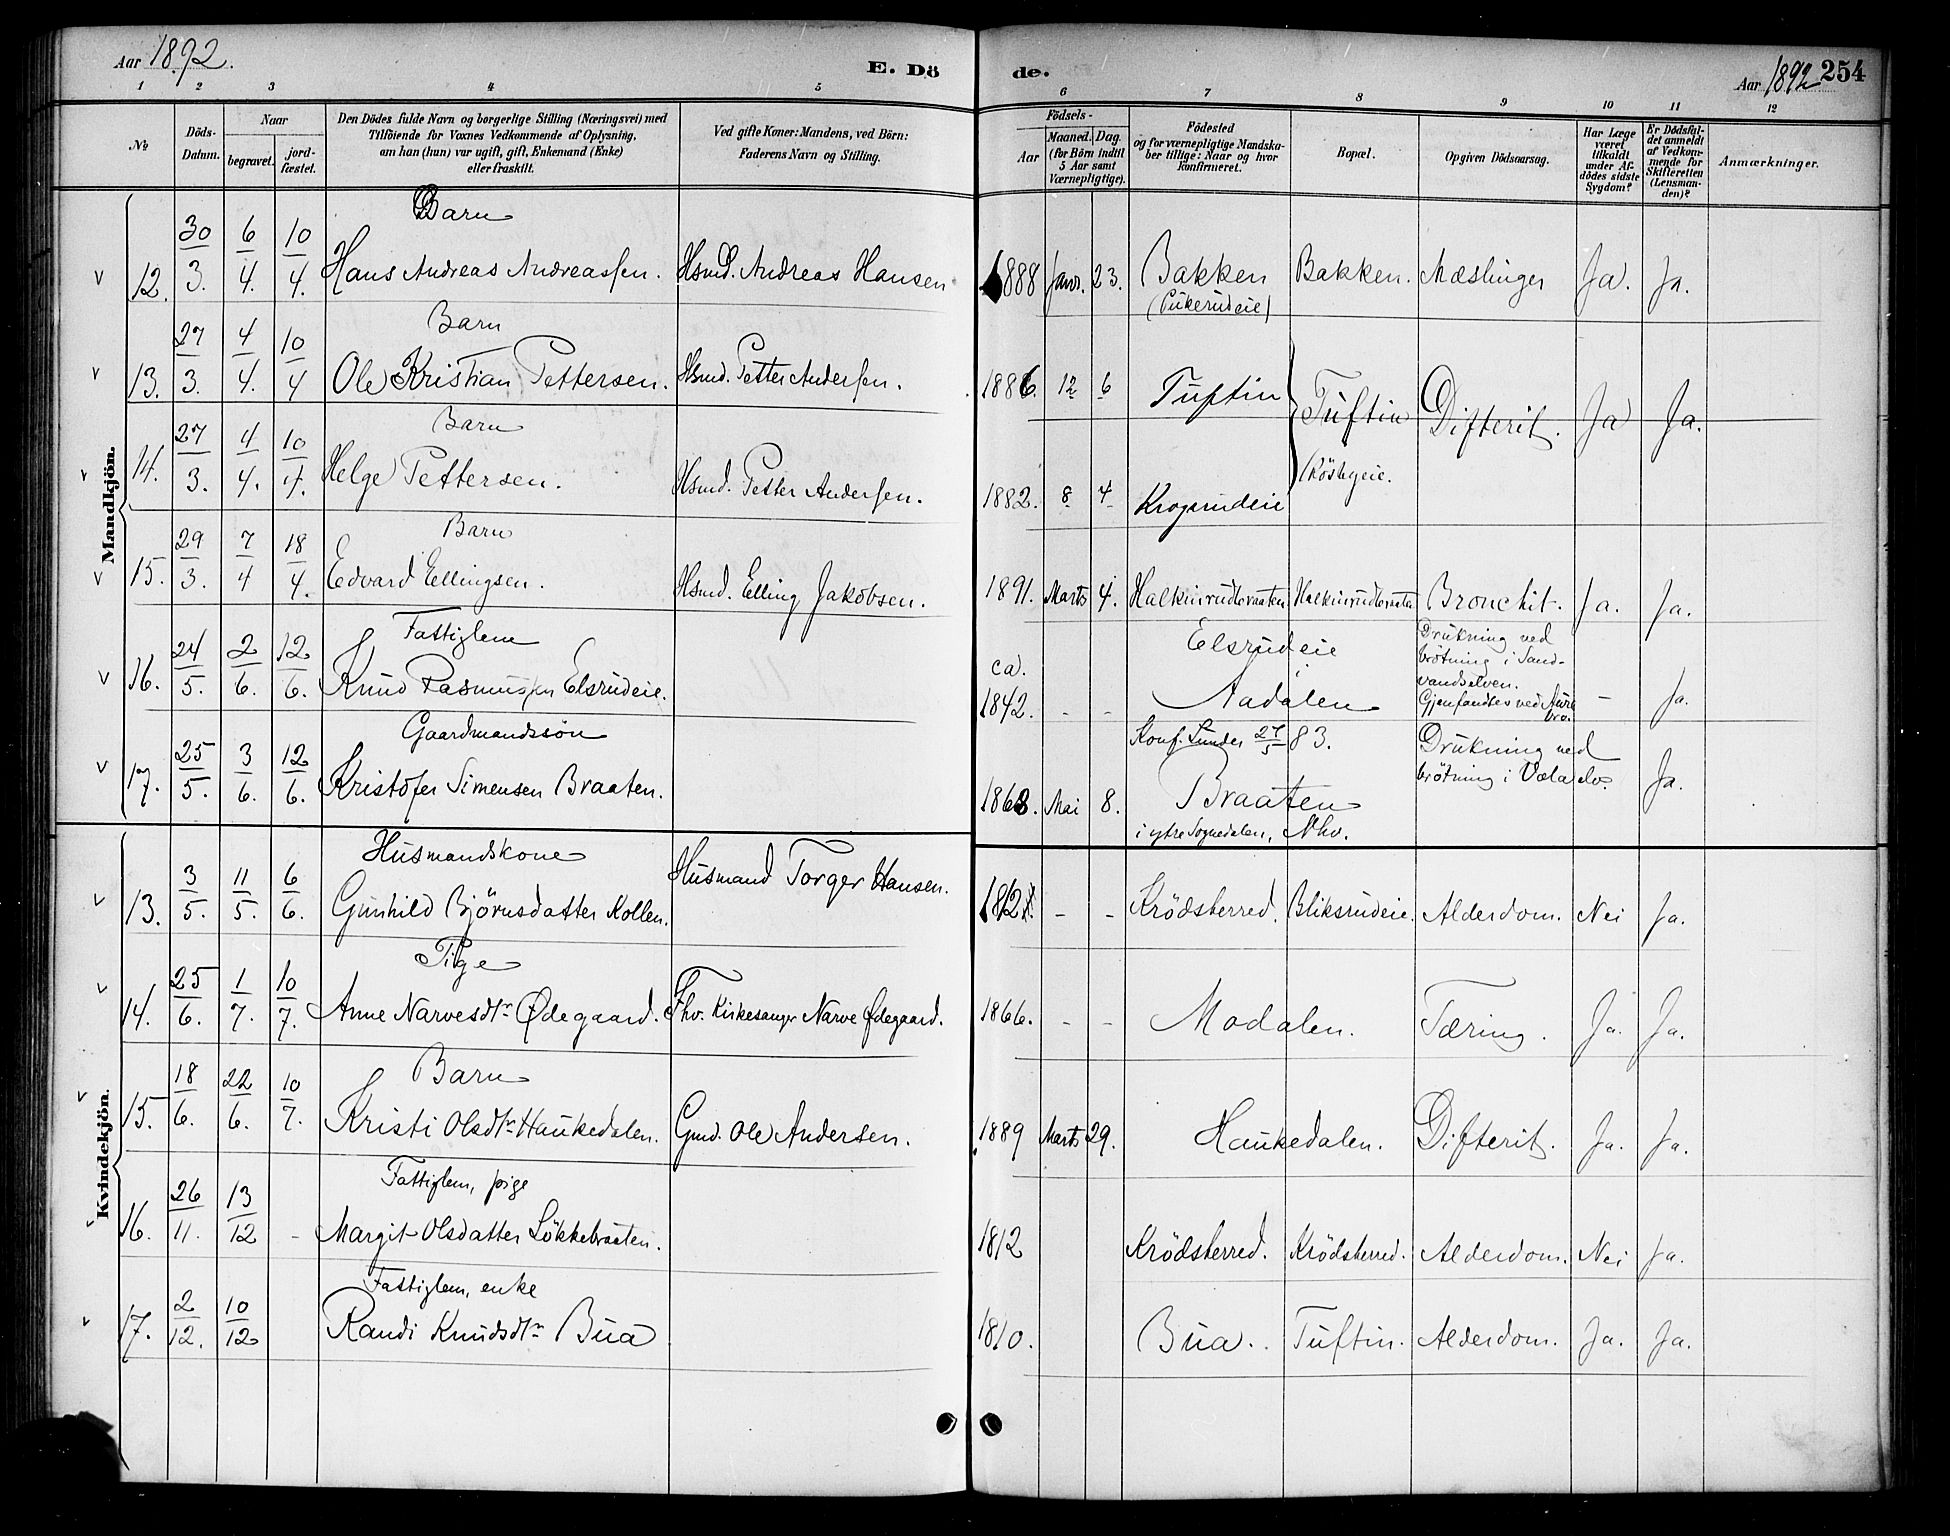 Aar 1892.
E. Dö
de.
Aar 1892
254
1 2 3 4 5
6 7 8 9 10 11 12
No
Döds-Datum.
Naar
begravet.
jord-fæstet.
Den Dödes fulde Navn og borgerlige Stilling (Næringsvei) med
Tilföiende for Voxnes Vedkommende af Oplysning,
om han (hun) var ugift, gift, Enkemand (Enke)
eller fraskilt.
Ved gifte Koner: Mandens, ved Börn:
Faderens Navn og Stilling.
Födsels-
Aar
Maaned. Dag.
(for Börn indtil
5 Aar samt
Værnepligtige).
Födested
og for værnepligtige Mandska-
ber tillige: Naar og hvor
konfirmeret.
Bopæl.
Opgiven Dödsaarsag.
Har Læge
været
tilkaldt
under Af-
dödes sidste
Sygdom?
Er Dödsfal-
det anmeldt
af Vedkom-
mende for
Skifteretten
(Lensman-
den)?
Anmærkninger.
Mandkjön.
Barn
12. 30/3. 6/4. 10/4. Hans Andreas Andreassen. Hsmd. Andreas Hansen 1888 Janr. 23. Bakken Bakken. Mæslinger Ja. Ja.
(Pukerudeie)
Barn
13. 27/3. 4/4. 10/4 Ole Kristian Pettersen. Hsmd. Petter Andersen. 1886. 12 6 Tuftin Tuftin Difterit. Ja Ja.
Barn
14. 27/3. 4/4. 10/4. Helge Pettersen. Hsmd. Petter Andersen. 1882. 8 4 Krogsrudeie
Barn
15. 29/3. 7/4 18/4. Edvard Ellingsen. Hsmd. Elling Jakobsen. 1891. Marts 4. Bronchit. Ja. Ja.
Fattiglem
16. 24/5. 2/6. 12/6. Knud Rasmussen Elsrudeie. ca. 1842. - - Elsrudeie
Aadalen
Drukning ved
brötning i Sand-
vandselven.
Gjenfandtes ved
- Ja.
Gaardmandssön
17. 25/5. 3/6. 12/6. Kristofer Simensen Braaten. 1868. Mai 8. Konf. Lunder 27/5 83.
Braaten
i ytre Sognedalen, Nhv.
Drukning ved
brötning i Væla elv.
Ja.
Kvindekjön.
Husmandskone
13. 3/5. 11/5. 6/6. Gunhild Björnsdatter Kollen. Husmand Torger Hansen. - - Krödsherred. Bliksrudeie. Alderdom. Nei Ja.
Pige
14. 25/6. 1/7. 10/7. Anne Narvesdtr Ødegaard. Fhv. Kirkesanger Narve Ødegaard. 1866. - - Modalen. Tæring. Ja. Ja.
Barn
15. 18/6. 22/6. 10/7. Kristi Olsdtr Haukedalen. Gmd. Ole Andersen. 1889 Marts 29. Haukedalen. Difterit. Ja. Ja.
Fattiglem, pige
16. 26/11. 13/12 - Margit Olsdatter Lökkebraaten. 1812 Krödsherred. Krödsherred. Alderdom. Nei Ja.
Fattiglem, enke
17. 2/12. 10/12 Randi Knudsdtr Bua 1810. Bua. Tuftin. Alderdom. Ja. Ja.